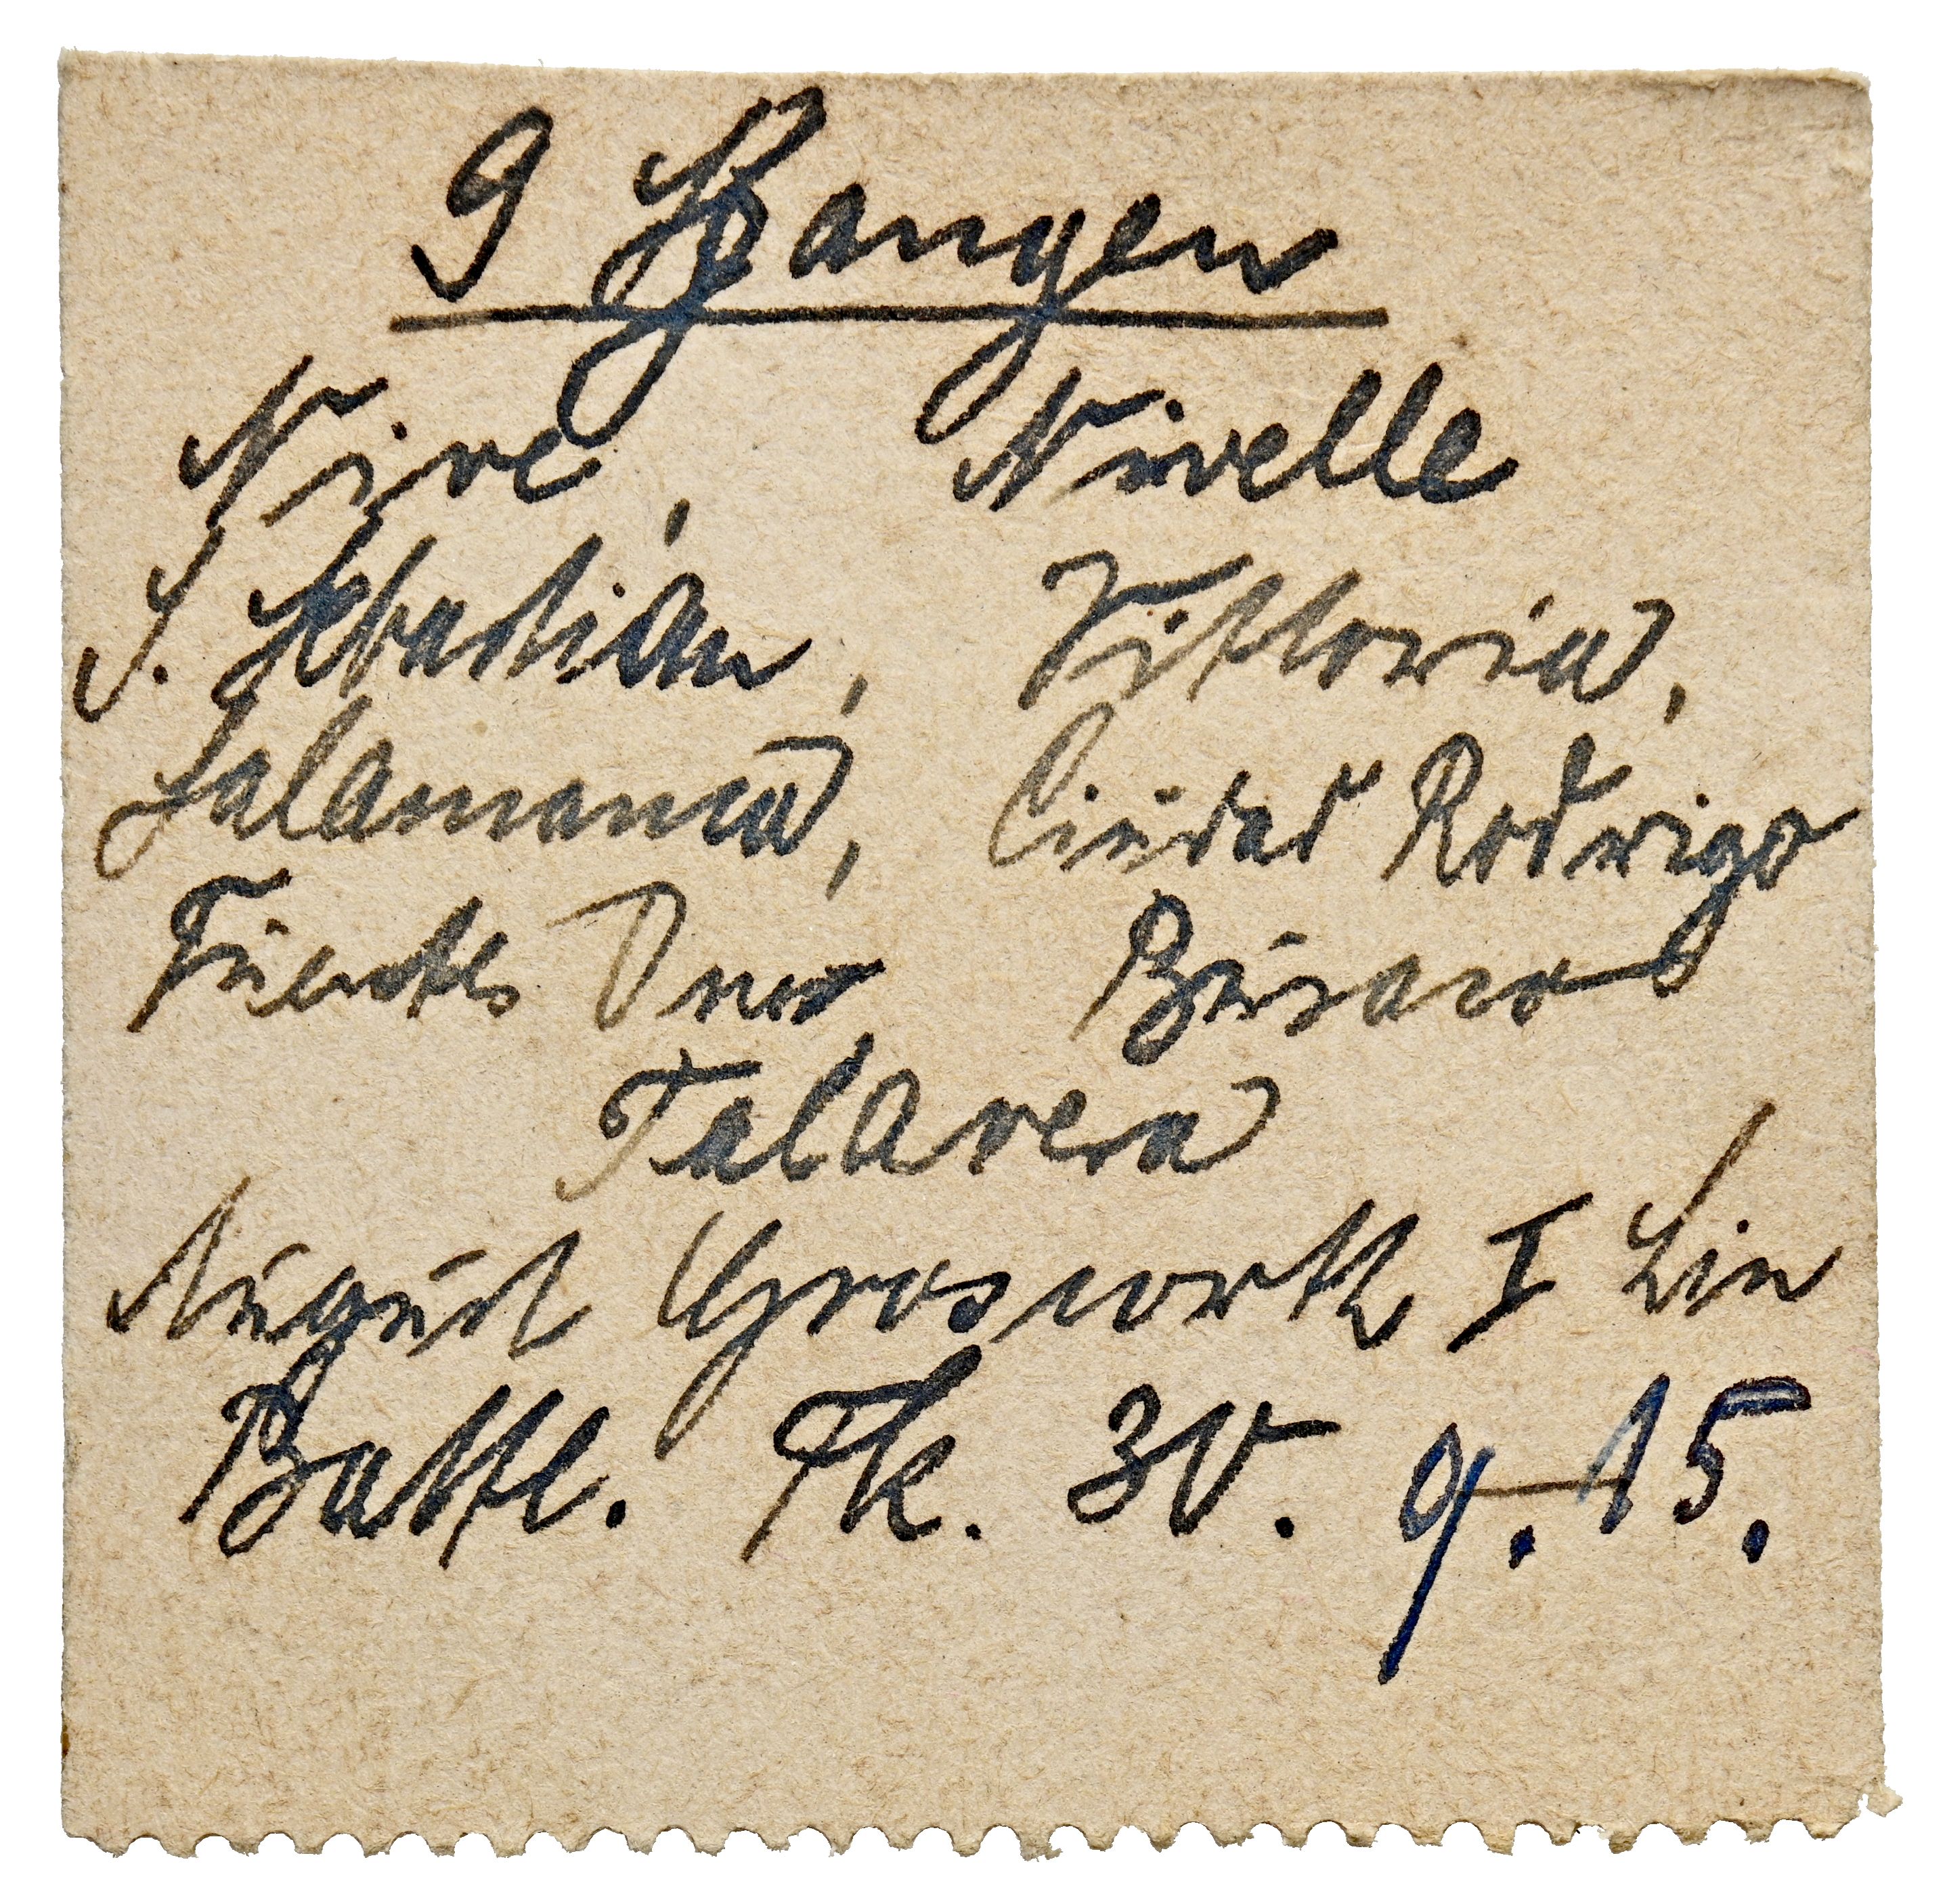 9 Spangen
Nive, Nivelle
S. Sebastian, Viktoria,
Salamanca, Ciudad Rodrigo
Fuentes Onor Busaco
Talavera
August Grosworth I Lin
Battl.